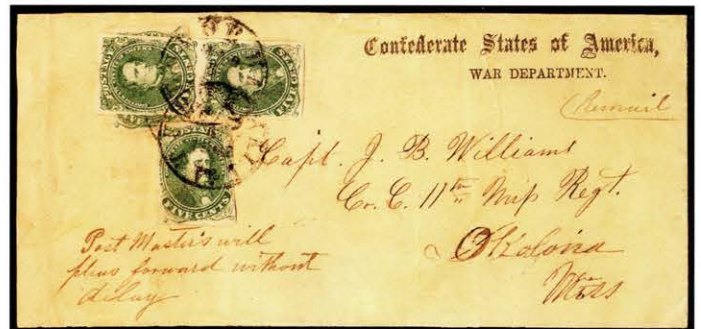 Confederate States of America,
WAR DEPARTMENT.
Capt. J. B. Williams
Co. C. 11th Miss Regt.
Okolona
Miss
Post Master's will
pleas forward without
delay
FIVE CENTS